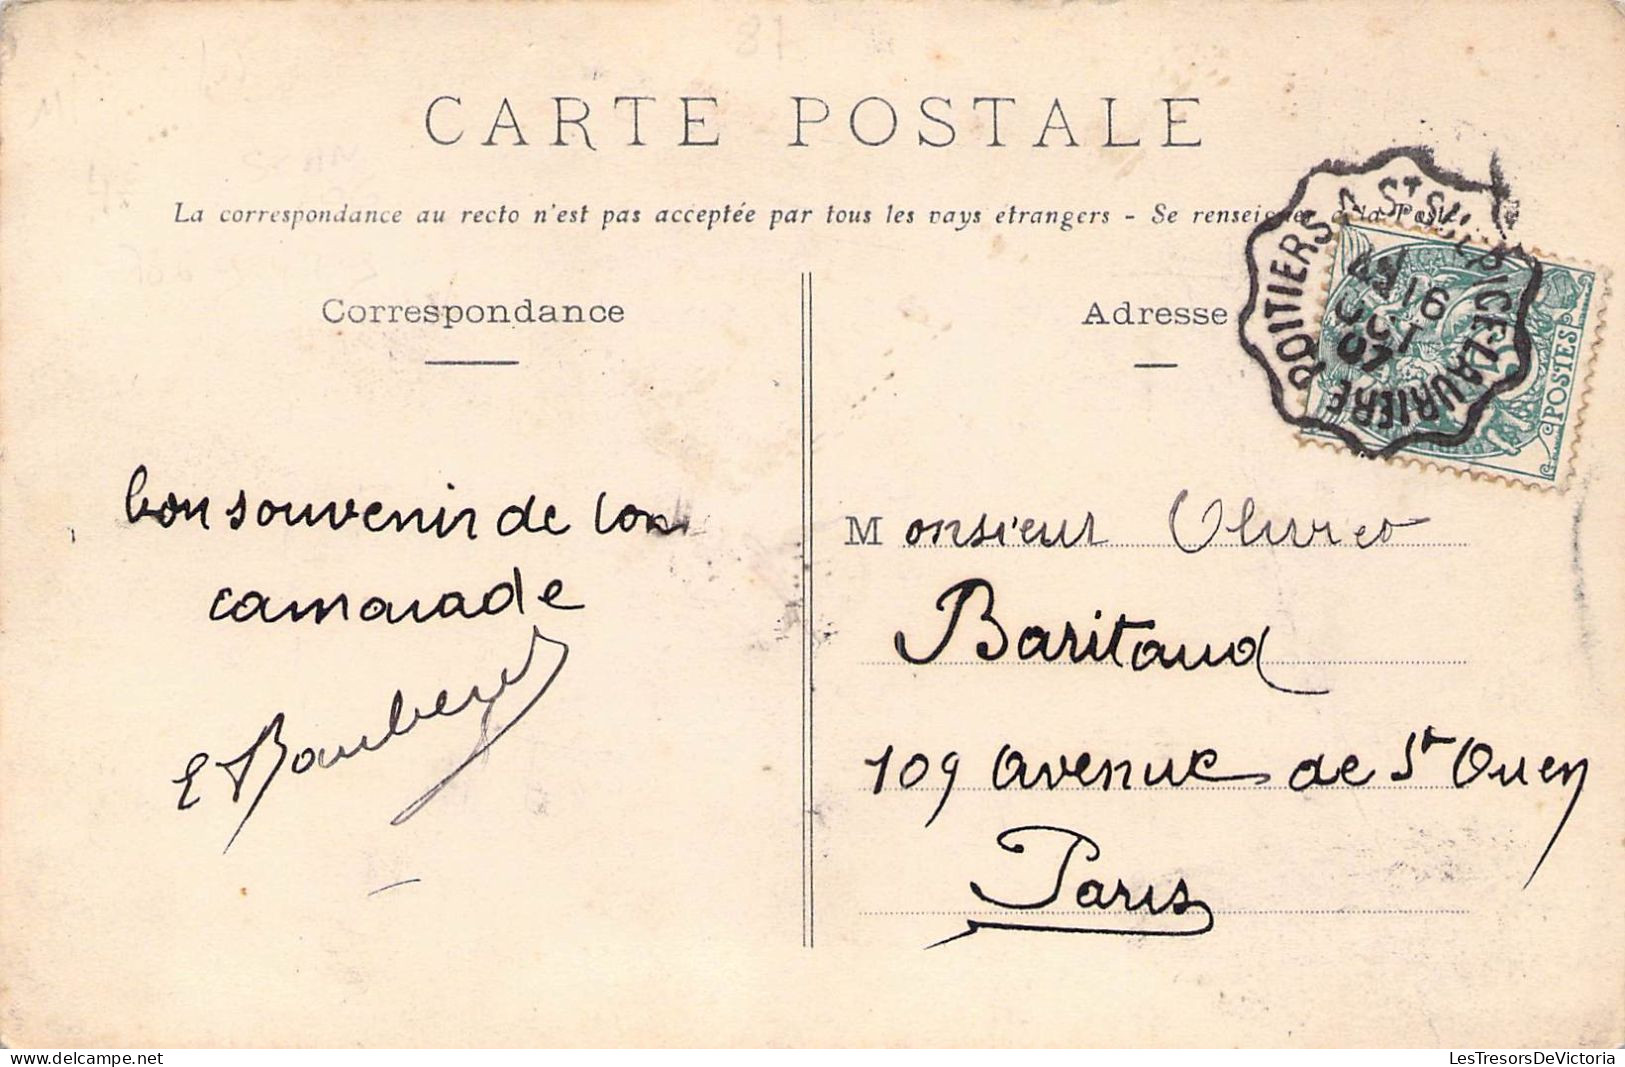 CARTE POSTALE
La correspondance au recto n'est pas acceptée par tous les pays étrangers - Se renseigner à la Poste
Correspondance
Adresse
POITIERS A ST SULPICE-LAURIÈRE
16
OCT
07
POSTES
bon souvenir de ton
camarade
Monsieur
Baritaud
109 avenue de St Ouen
Paris
delcampe.net
LesTresorsDeVictoria